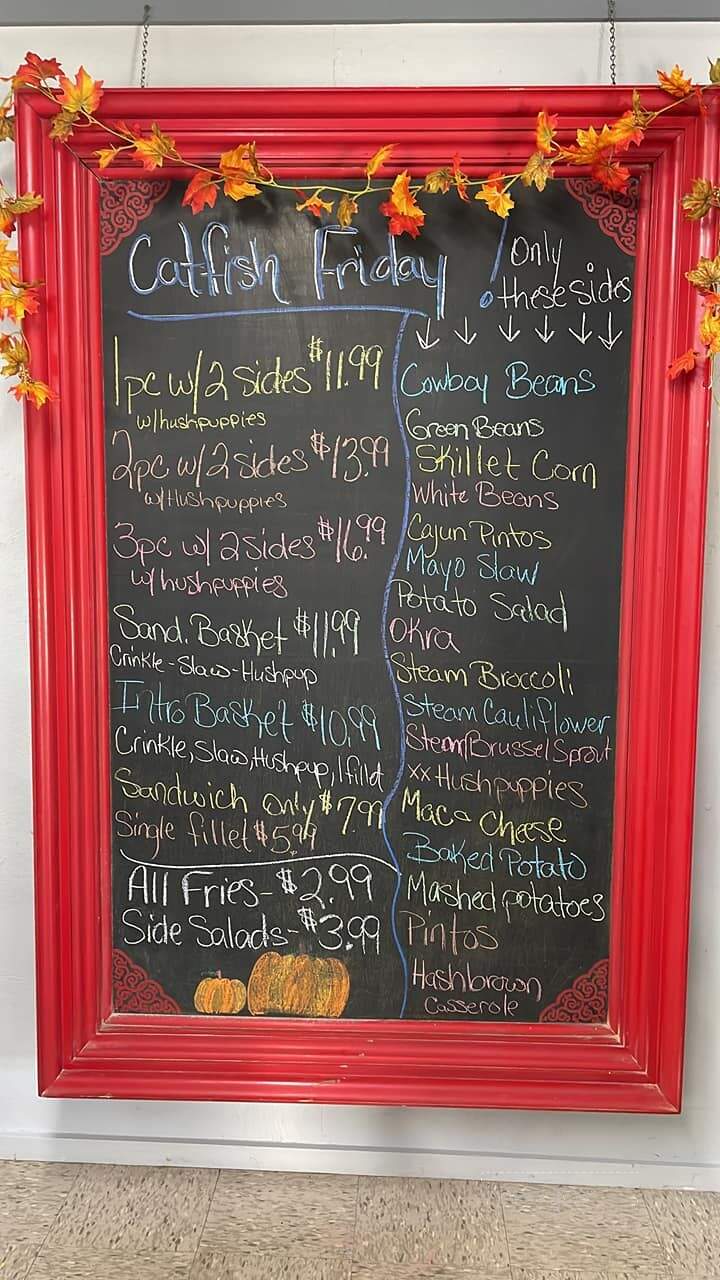 Catfish Friday!
1pc w/2 sides $11.99
w/hushpuppies
2pc w/2 sides $13.99
w/Hushpuppies
3pc w/ 2 sides $16.99
w/hushpuppies
Sand. Basket $11.99
Crinkle-Slaw-Hushpup
Intro Basket $10.99
Crinkle, Slaw, Hushpup, 1 fillet
Sandwich only $7.99
Single fillet $5.99
All Fries- $2.99
Side Salads- $3.99
Only
these sides
Cowboy Beans
Green Beans
Skillet Corn
White Beans
Cajun Pintos
Mayo Slaw
Potato Salad
Okra
Steam Broccoli
Steam Cauliflower
Steam/Brussel Sprout
xx Hushpuppies
Mac a Cheese
Baked Potato
Mashed potatoes
Pintos
Hashbrown
Casserole